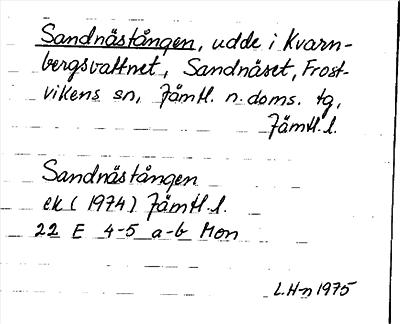 Sandnästången, udde i Kvarn-
bergsvattnet, Sandnäset, Frost-
vikens sn, Jämtl. n. doms. tg,
Jämtl.l.
Sandnästången
ek (1974) Jämtl.l.
22 E 4-5 a-b Mon
L.H-n 1975